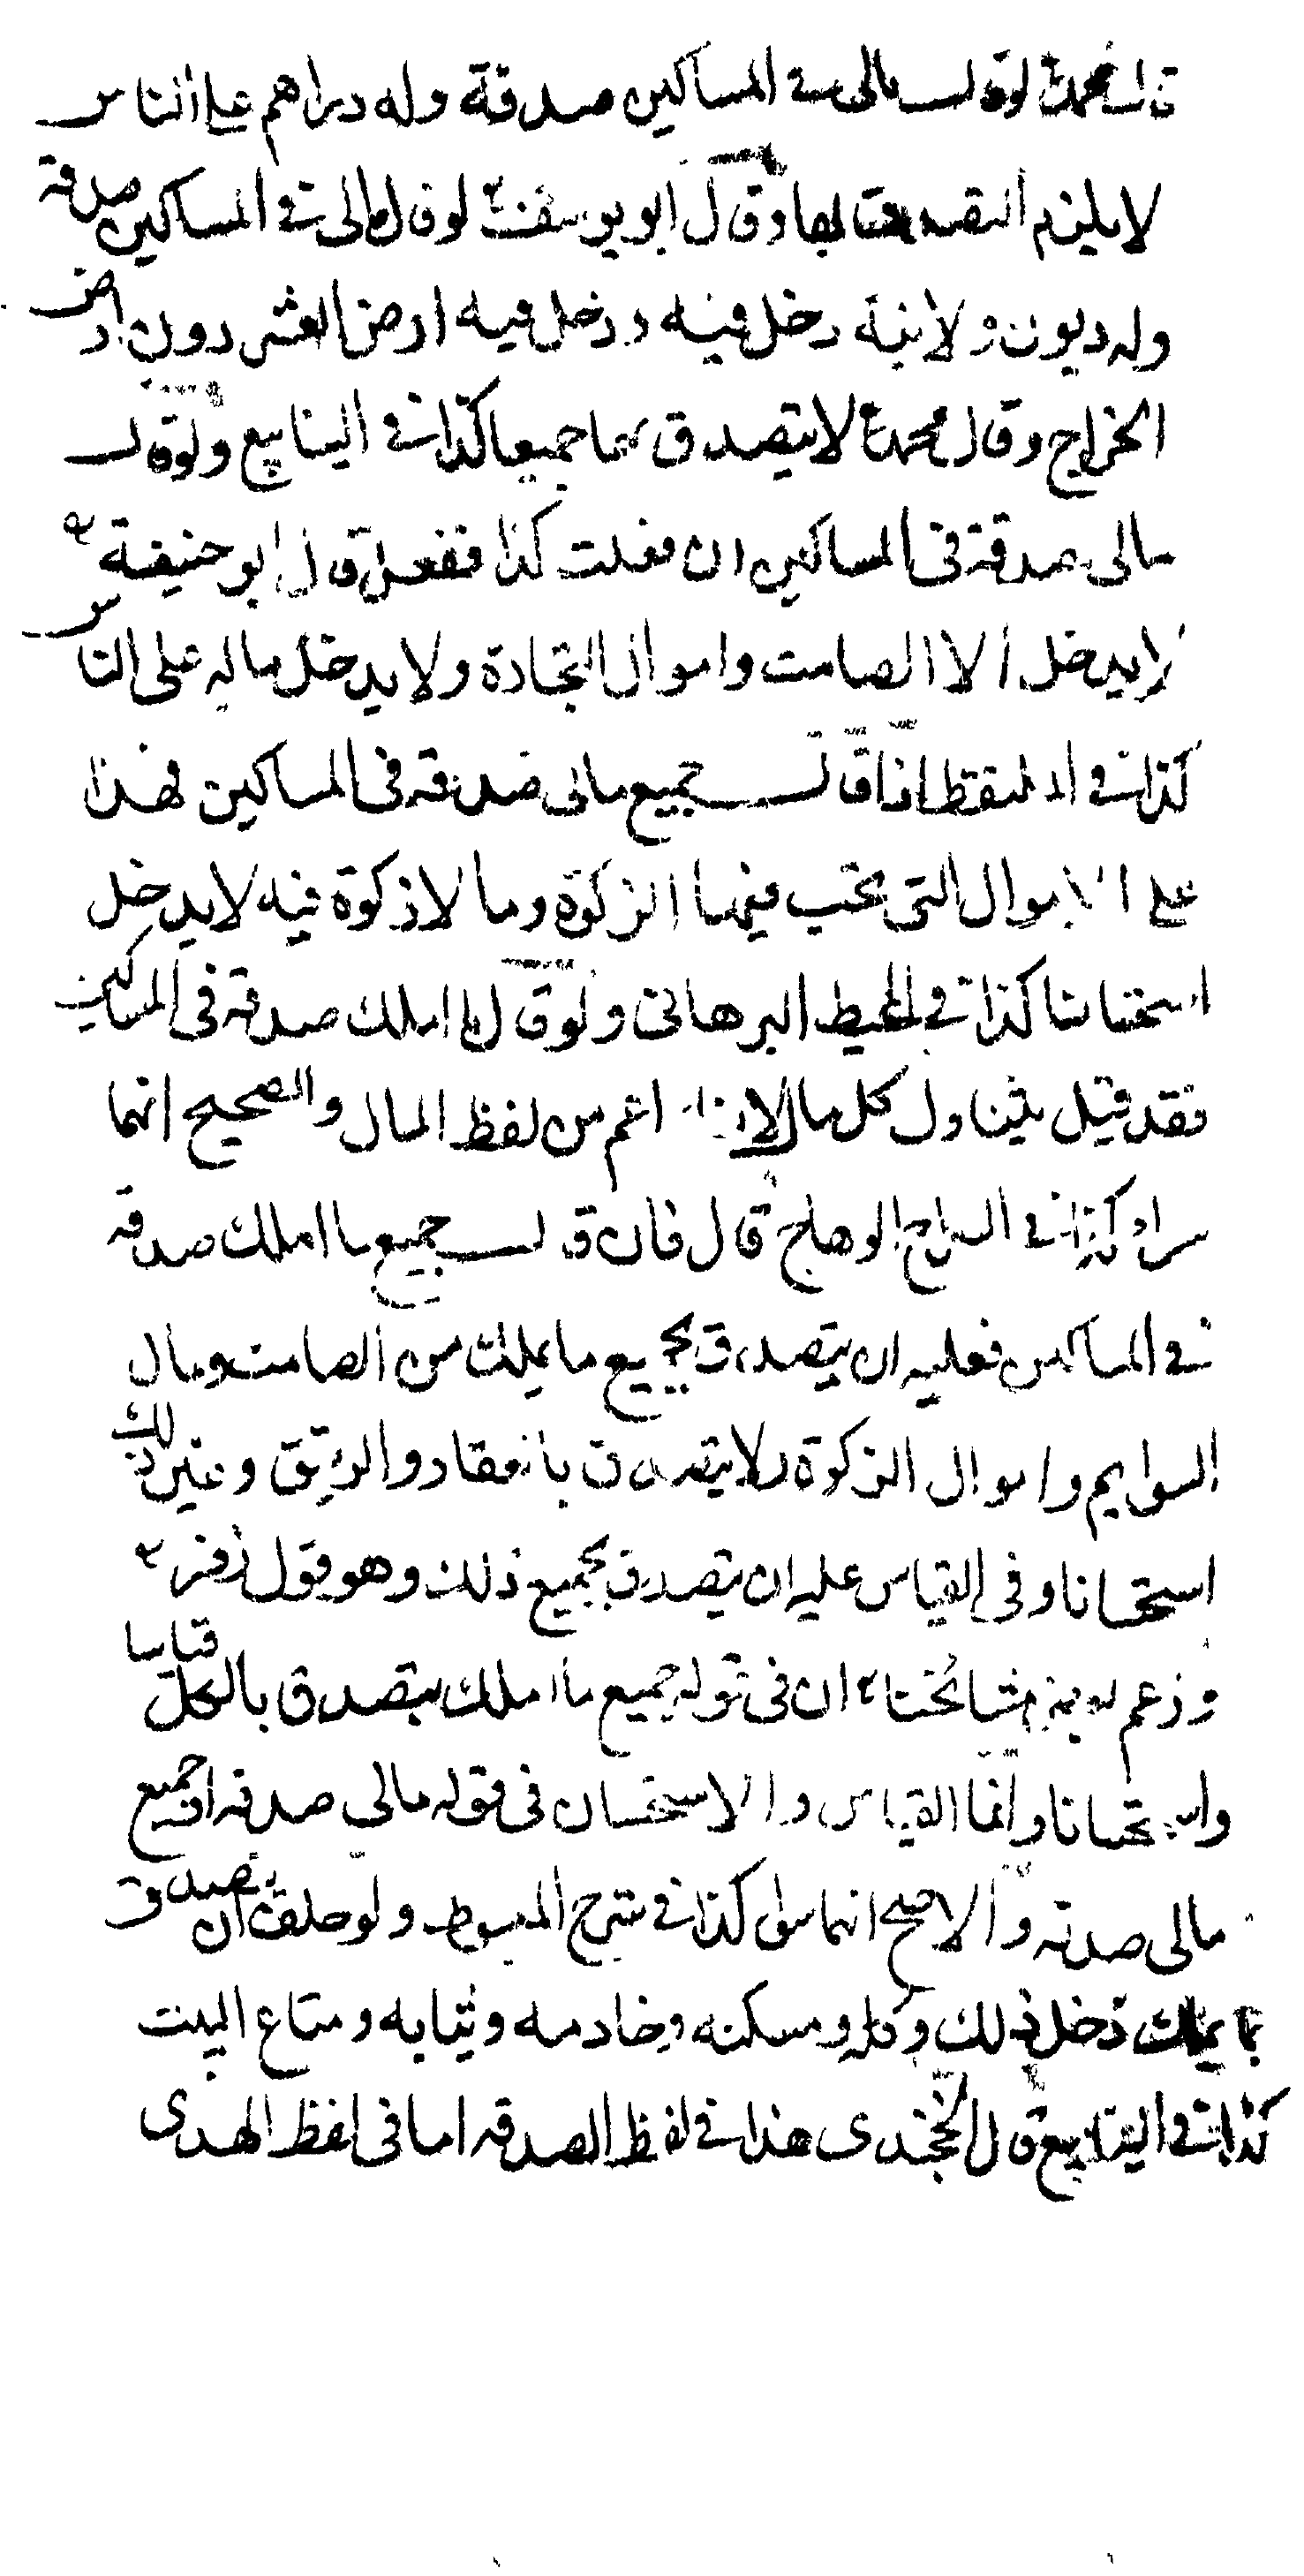 قال محمد لو قال مالى فى المساكين صدقة وله دراهم على الناس
لا يلزم التصدق بها وقال ابو يوسف لو قال مالى فى المساكين صدقة
وله ديون ولا نية دخل فيه ودخل فيه ارض العشر دون ارض
الخراج وقال محمد لا يتصدق بهما جميعا كذا فى الينابيع ولو قال
مالى صدقة فى المساكين ان فعلت كذا ففعل قال ابو حنيفة
لا يدخل الا الصامت واموال التجارة ولا يدخل ماله على الناس
كذا فى الملتقط اذا قال جميع مالى صدقه فى المساكين فهذا
على الاموال التى تجب فيها الزكوة وما لا زكوة فيه لا يدخل
استحسانا كذا فى المحيط البرهانى ولو قال ما املك صدقه فى المساكين
فقد قيل يتناول كل مال لانه اعم من لفظ المال والصحيح انهما
سواء كذا فى السراج الوهاج قال فان قال جميع ما املك صدقه
فى المساكين فعليه ان يتصدق بجميع ما يملك من الصامت ومال
السوايم واموال الزكوة ولا يتصدق بالعقار والرقيق وغير ذلك
استحسانا وفى القياس عليه ان يتصدق بجميع ذلك وهو قول زفر
وزعم بعض مشائخنا ان فى قوله جميع ما املك يتصدق بالكل قياسا
واستحسانا وانما القياس والاستحسان فى قوله مالي صدقه او جميع
مالى صدقه والاصح انهما سواء كذا فى شرح المبسوط ولو حلف ان يتصدق
بما يملك دخل ذلك وكله ومسكنه وخادمه وثيابه ومتاع البيت
كذا فى الينابيع قال الخجندى هذا فى لفظ الصدقه اما فى لفظ الهدى